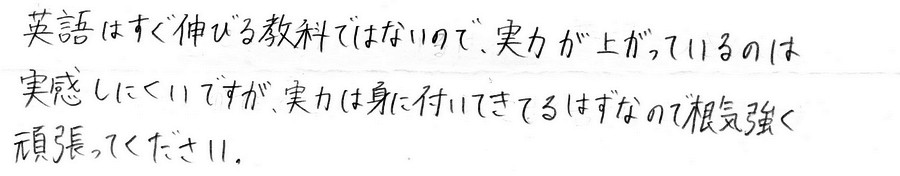 英語はすぐ伸びる教科ではないので、実力が上がっているのは
実感しにくいですが、実力は身に付いてきてるはずなので根気強く
頑張ってください。